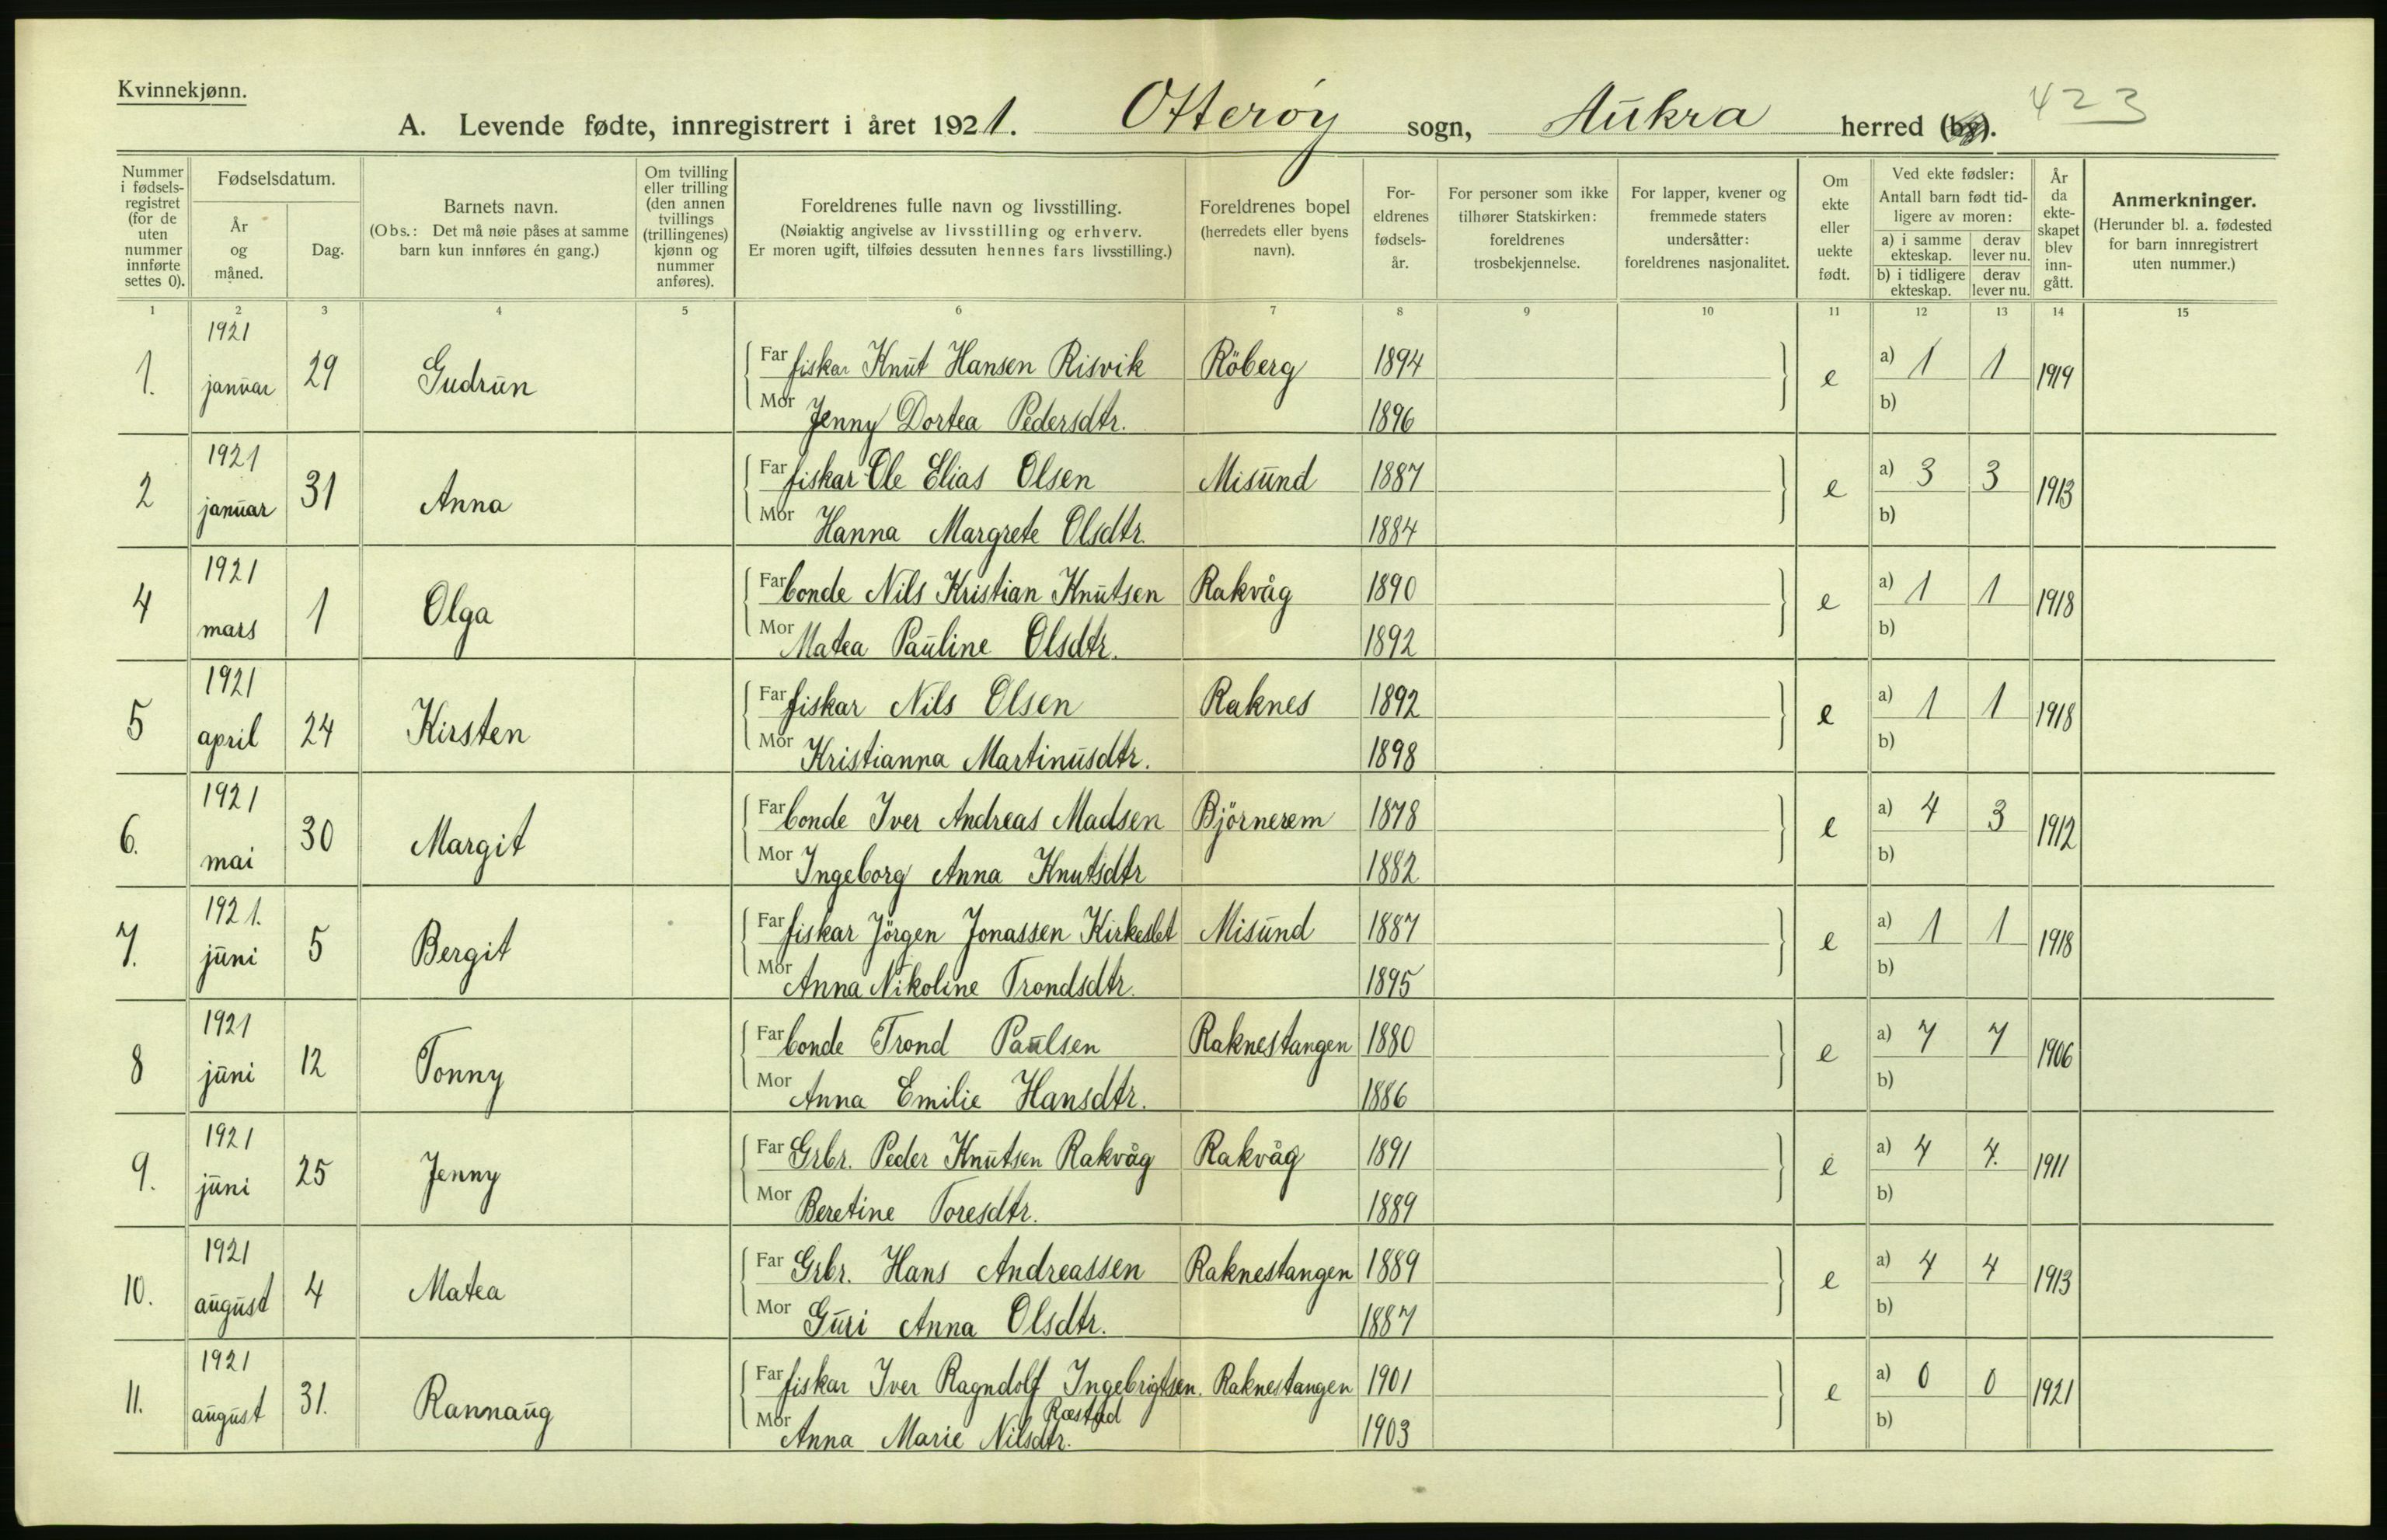 Kvinnekjønn.
A. Levende fødte, innregistrert i året 1921. Otterøy sogn, Aukra herred (by). 423
Nummer i fødsels-registret (for de uten nummer innførte settes 0).
Fødselsdatum.
År og måned.
Dag.
Barnets navn.
(Obs.: Det må nøie påses at samme barn kun innføres én gang.)
Om tvilling eller trilling (den annen tvillings (trillingenes) kjønn og nummer anføres).
Foreldrenes fulle navn og livsstilling.
(Nøiaktig angivelse av livsstilling og erhverv.
Er moren ugift, tilføies dessuten hennes fars livsstilling.)
Foreldrenes bopel (herredets eller byens navn).
For-eldrenes fødsels-år.
For personer som ikke tilhører Statskirken: foreldrenes trosbekjennelse.
For lapper, kvener og fremmede staters undersåtter: foreldrenes nasjonalitet.
Om ekte eller uekte født.
Ved ekte fødsler:
Antall barn født tid-ligere av moren:
a) i samme ekteskap. derav lever nu.
b) i tidligere ekteskap. derav lever nu.
År da ekte-skapet blev inn-gått.
Anmerkninger.
(Herunder bl. a. fødested for barn innregistrert uten nummer.)
1 2 3 4 5 6 7 8 9 10 11 12 13 14 15
1. 1921 januar 29 Gudrun Far fiskar Knut Hansen Risvik Röberg 1894 e a) 1 1 1919
Mor Jenny Dortea Pedersdtr. 1896 b)
2 1921 januar 31 Anna Far fiskar Ole Elias Olsen Misund 1887 e a) 3 3 1913
Mor Hanna Margrete Olsdtr. 1884 b)
4 1921 mars 1 Olga Far bonde Nils Kristian Knutsen Rakvåg 1890 e a) 1 1 1918
Mor Matea Pauline Olsdtr. 1892 b)
5 1921 april 24 Kirsten Far fiskar Nils Olsen Raknes 1892 e a) 1 1 1918
Mor Kristianna Martinusdtr. 1898 b)
6. 1921 mai 30 Margit Far bonde Iver Andreas Madsen Björnerem 1878 e a) 4 3 1912
Mor Ingeborg Anna Knutsdtr 1882 b)
7. 1921. juni 5 Bergit Far fiskar Jörgen Jonassen Kirkeslet Misund 1887 e a) 1 1 1918
Mor Anna Nikoline Trondsdtr. 1895 b)
8 1921 juni 12 Tonny Far bonde Trond Paulsen Raknestangen 1880 e a) 7 7 1906
Mor Anna Emilie Hansdtr. 1886 b)
9. 1921 juni 25 Jenny Far Grbr. Peder Knutsen Rakvåg Rakvåg 1891 e a) 4 4. 1911
Mor Beretine Toresdtr. 1889 b)
10. 1921 august 4 Matea Far Grbr. Hans Andreassen Raknestangen 1889 e a) 4 4 1913
Mor Guri Anna Olsdtr. 1887 b)
11. 1921 august 31. Rannaug Far fiskar Iver Ragndolf Ingebrigtsen. Raknestangen 1901 e a) 0 0 1921
Ræstad
Mor Anna Marie Nilsdtr. 1903 b)